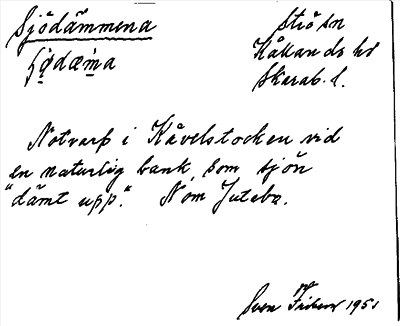 Sjödämmena
Strö sn
Kållands hd
Skarab. l.
Notvarp i Kåvelstocken vid
en naturlig bank, som sjön
"dämt upp." Nom Jutebo.
Sven 1951